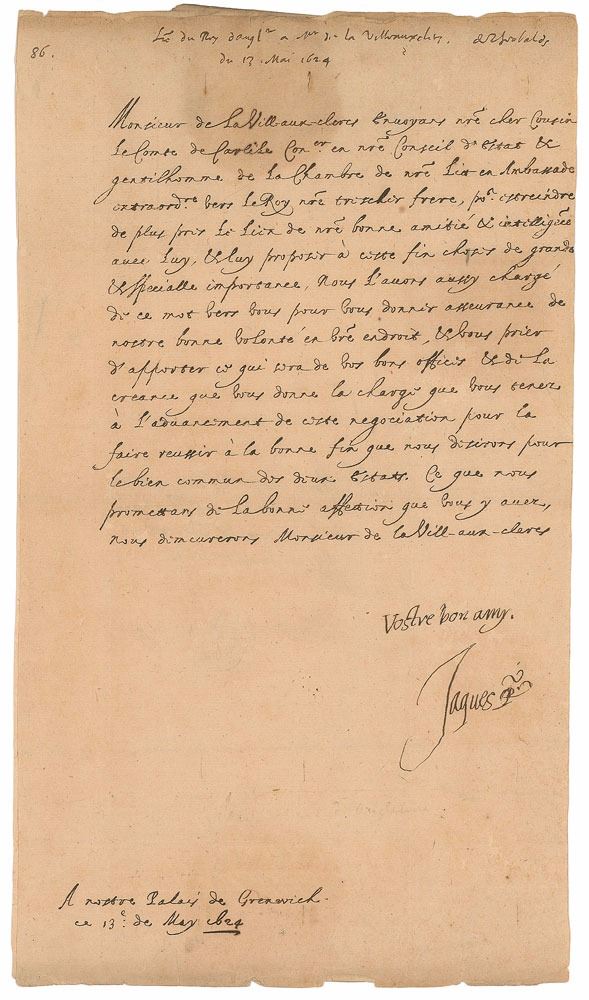 86.
Lre du Roy dangl.re a Mr de la Villeauxclercs.
du 13 Mai 1624
Monsieur de La Vill-aux-clercs Envoyans nrē cher Cousin
Le Comte de Carlile Con.er en nrē Conseil d'Estat &
gentilhomme de La Chambre de nrē Lit en Ambassade
extraord.re vers Le Roy nrē treschier frere, po.r estreindre
de plus pres Le Lien de nrē bonne amitié & intelligēce
avec Luy, & Luy proposer à ceste fin choses de grande
& specialle importance, Nous L'avons aussy chargé
de ce mot vers vous pour vous donner asseurance de
nostre bonne volonté en vrē endroit, & vous prier
d'apporter ce qui sera de vos bons offices & de La
creance que vous donne la charge que vous tenez
à L'aduancement de ceste negociation pour la
faire reussir à la bonne fin que nous desirons pour
le bien commun des deux Estats. Ce que nous
promettans de La bonne affection que vous y avez,
nous demeurerons Monsieur de la Vill-aux-clercs
Vostre bon amy.
Jaques R.
A nostre Palais de Grenewich
ce 13.e de May 1624